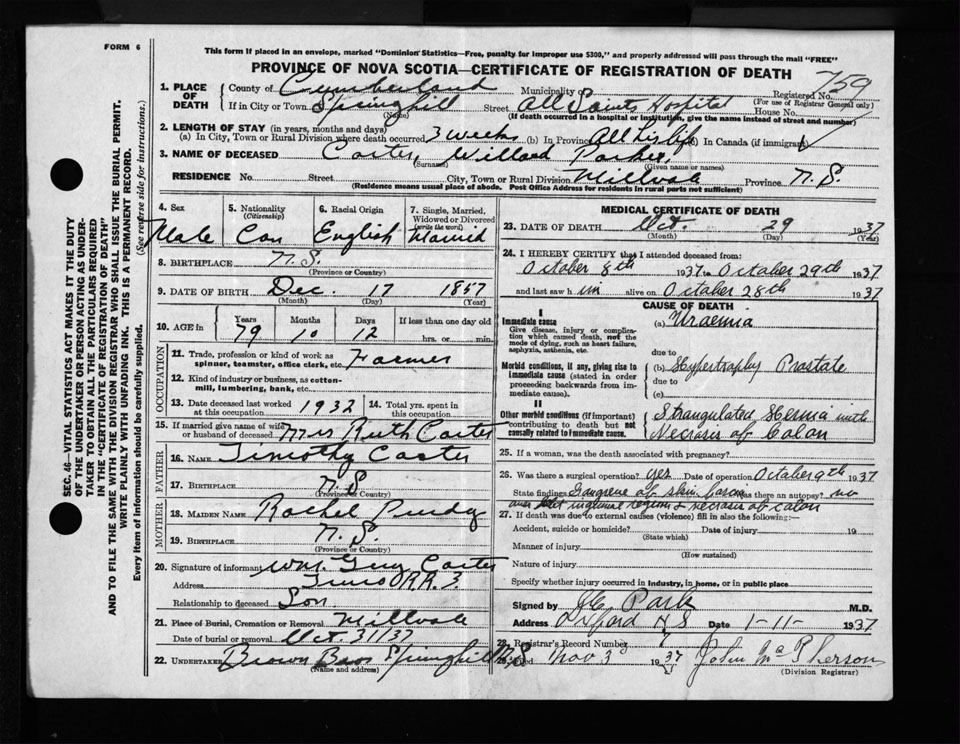 FORM 6
This form if placed in an envelope, marked "Dominion Statistics—Free, penalty for improper use $300," and properly addressed will pass through the mail "FREE"
PROVINCE OF NOVA SCOTIA—CERTIFICATE OF REGISTRATION OF DEATH
759
1. PLACE OF DEATH
County of Cumberland Municipality of Registered No.
(For use of Registrar General only)
If in City or Town Springhill Street All Saints Hospital House No.
(Name) (If death occurred in a hospital or institution, give the name instead of street and number)
2. LENGTH OF STAY (in years, months and days)
(a) In City, Town or Rural Division where death occurred 3 weeks (b) In Province All his life (c) In Canada (if immigrant)
3. NAME OF DECEASED Carter, Willard Parker,
(Surname) (Given name or names)
RESIDENCE No. Street City, Town or Rural Division Millvale Province N. S.
(Residence means usual place of abode. Post Office Address for residents in rural parts not sufficient)
4. Sex Male
5. Nationality (Citizenship) Can
6. Racial Origin English
7. Single, Married, Widowed or Divorced (write the word) Married
8. BIRTHPLACE N. S.
(Province or Country)
9. DATE OF BIRTH Dec. 17 1857
(Month) (Day) (Year)
10. AGE in Years Months Days If less than one day old
79 10 12 hrs. or min.
OCCUPATION
11. Trade, profession or kind of work as spinner, teamster, office clerk, etc. Farmer
12. Kind of industry or business, as cotton-mill, lumbering, bank, etc.
13. Date deceased last worked at this occupation 1932
14. Total yrs. spent in this occupation
15. If married give name of wife or husband of deceased Mrs Ruth Carter
FATHER
16. NAME Timothy Carter
17. BIRTHPLACE N. S.
(Province or Country)
MOTHER
18. MAIDEN NAME Rachel Purdy
19. BIRTHPLACE N. S.
(Province or Country)
20. Signature of informant Wm. Guy Carter
Address Truro R.R. 3
Relationship to deceased Son
21. Place of Burial, Cremation or Removal Millvale
Date of burial or removal Oct. 31/37
22. UNDERTAKER Brown Bros Springhill N.S
(Name and address)
MEDICAL CERTIFICATE OF DEATH
23. DATE OF DEATH Oct. 29 1937
(Month) (Day) (Year)
24. I HEREBY CERTIFY that I attended deceased from:
October 8th 1937 to October 29th 1937
and last saw him alive on October 28th 1937
CAUSE OF DEATH
I
Immediate cause
Give disease, injury or complication which caused death, not the mode of dying, such as heart failure, asphyxia, asthenia, etc.
(a) Uraemia
due to
Morbid conditions, if any, giving rise to immediate cause (stated in order proceeding backwards from immediate cause).
(b) Hypertrophy Prostate
due to
(c)
II
Other morbid conditions (if important) contributing to death but not causally related to immediate cause.
Strangulated Hernia with
Necrosis of Colon
25. If a woman, was the death associated with pregnancy?
26. Was there a surgical operation? Yes Date of operation October 9th 1937
State findings Gangrene of skin, Was there an autopsy? no
over inguinal region & necrosis of colon
27. If death was due to external causes (violence) fill in also the following:—
Accident, suicide or homicide? Date of injury 19
(State which)
Manner of injury
(How sustained)
Nature of injury
Specify whether injury occurred in industry, in home, or in public place
Signed by Park M.D.
Address Oxford N S Date 1-11- 1937
28. Registrar's Record Number 7
29. Filed Nov 3 1937 John McPherson
(Division Registrar)
SEC. 46—VITAL STATISTICS ACT MAKES IT THE DUTY
OF THE UNDERTAKER OR PERSON ACTING AS UNDER-
TAKER TO OBTAIN ALL THE PARTICULARS REQUIRED
IN THE "CERTIFICATE OF REGISTRATION OF DEATH"
AND TO FILE THE SAME WITH THE DIVISION REGISTRAR WHO SHALL ISSUE THE BURIAL PERMIT.
WRITE PLAINLY WITH UNFADING INK. THIS IS A PERMANENT RECORD.
Every item of information should be carefully supplied. (See reverse side for instructions.)